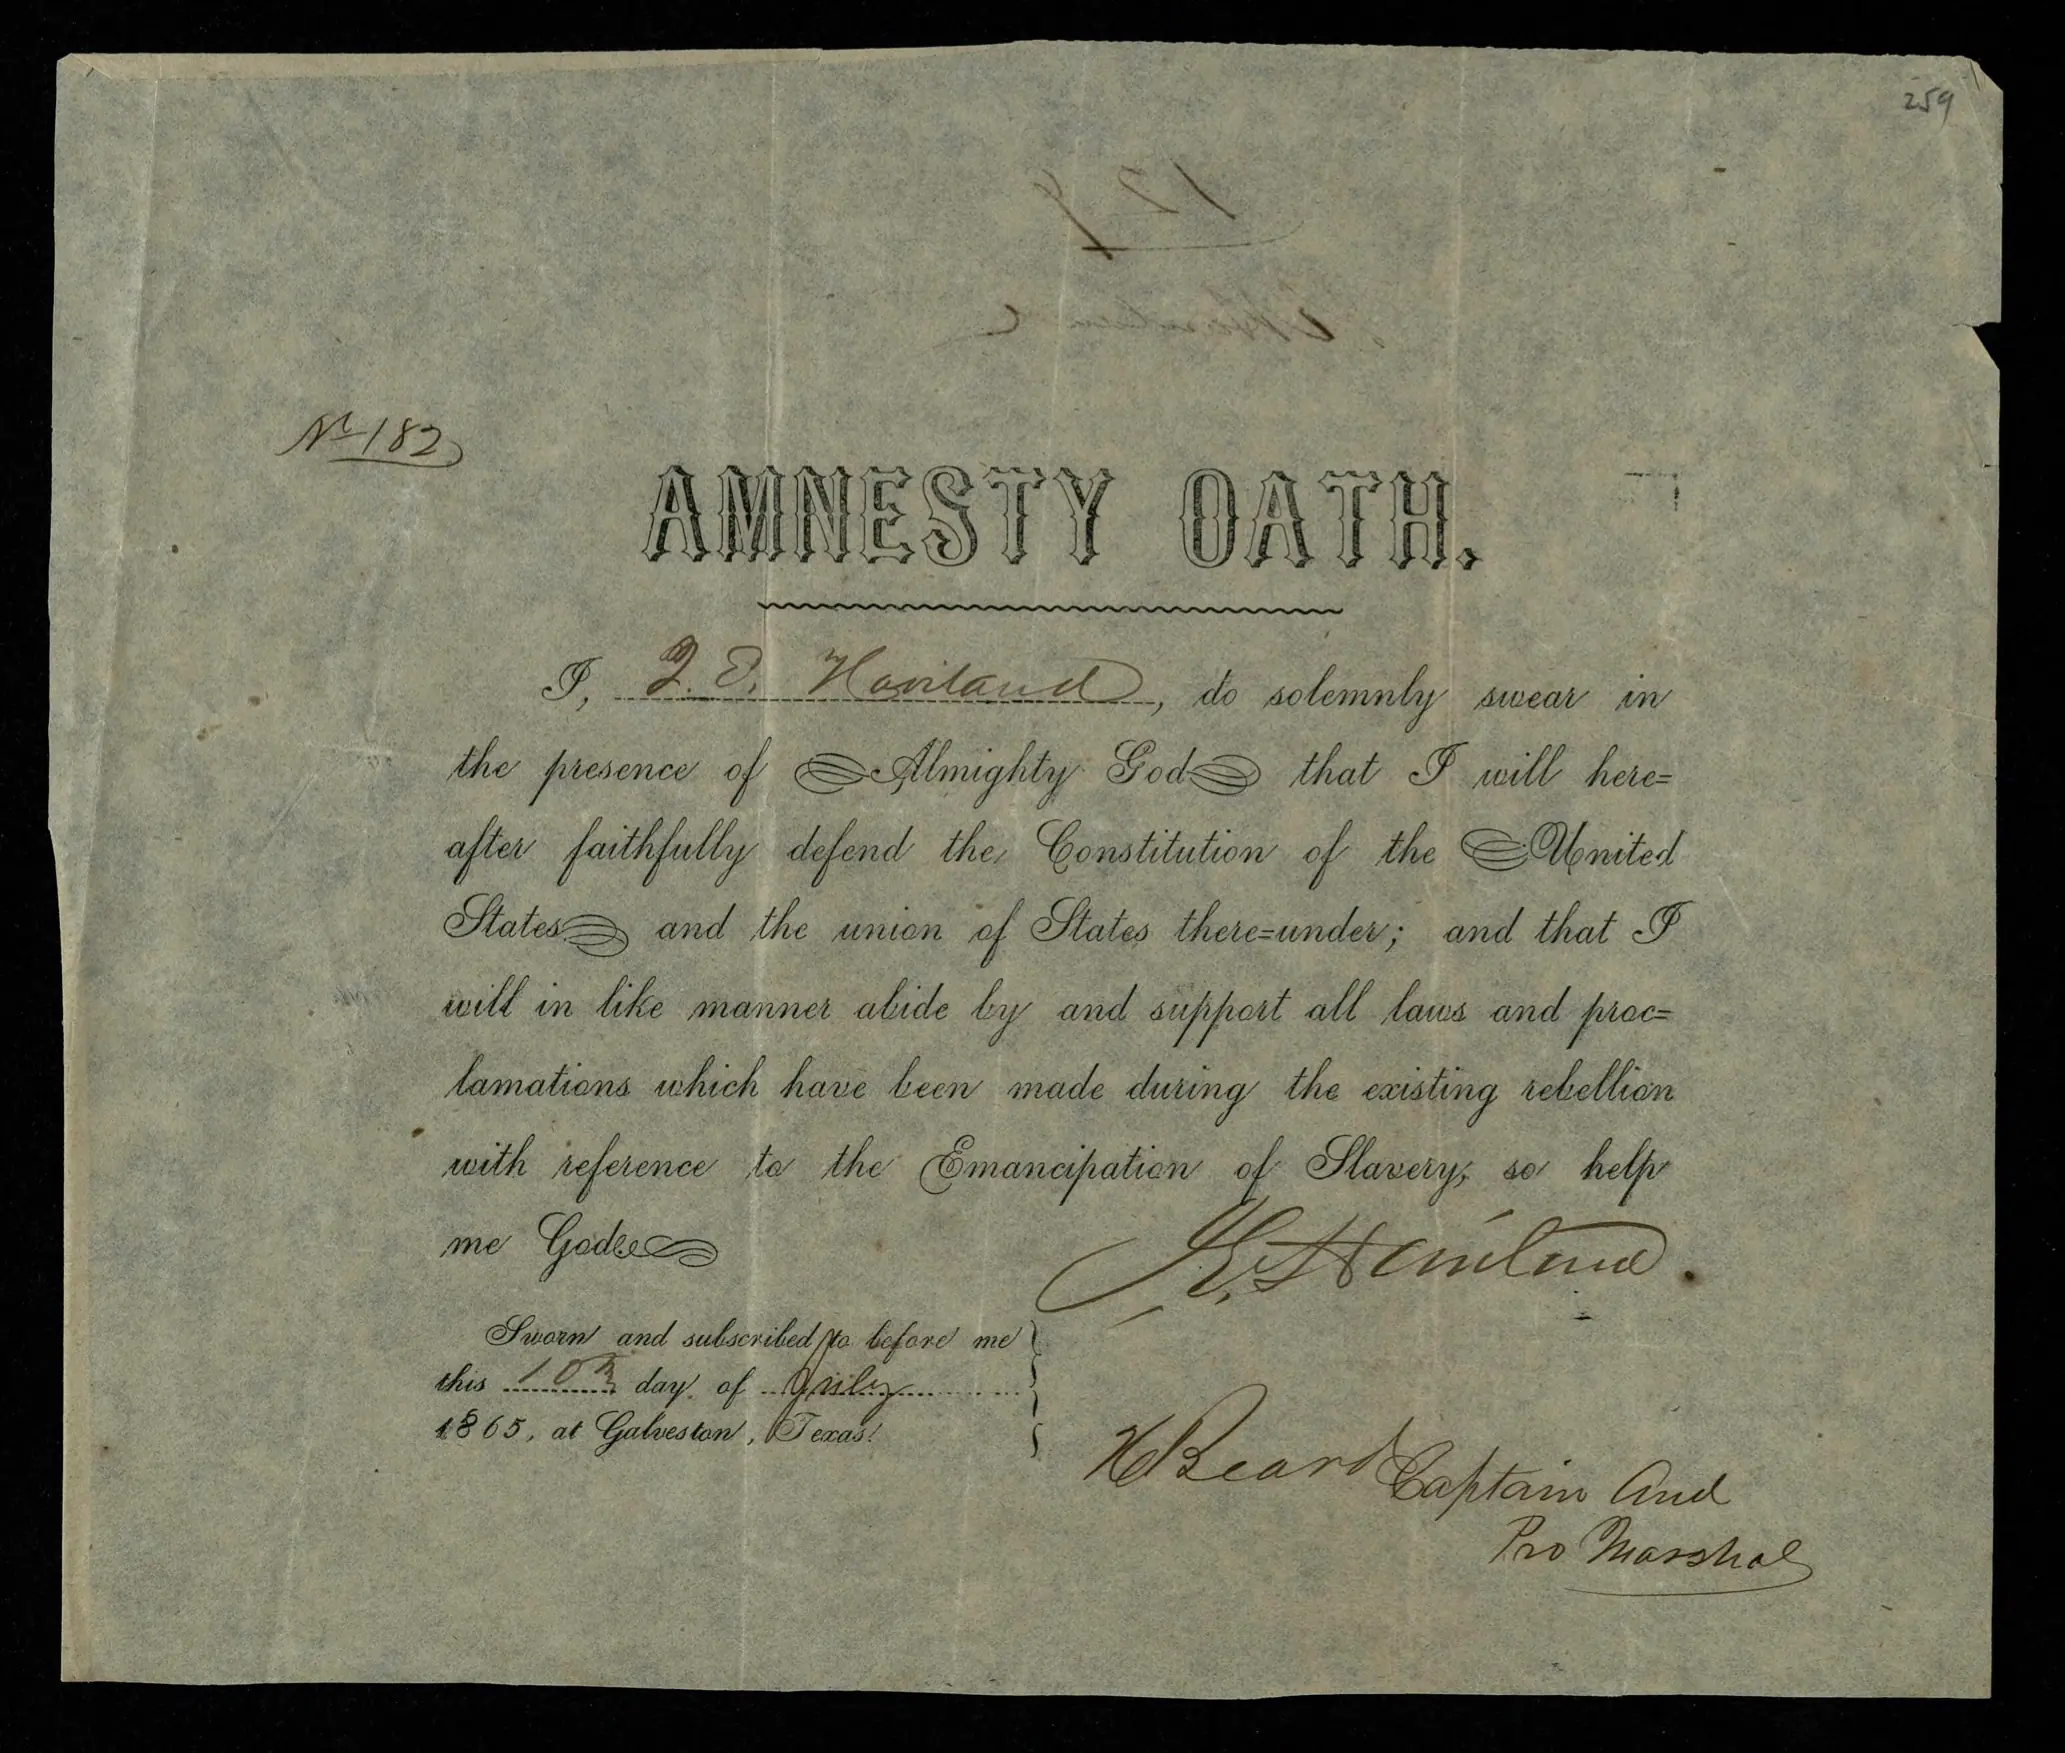 259
129
No 182
AMNESTY OATH.
I, J. E. Haviland, do solemnly swear in
the presence of Almighty God that I will here=
after faithfully defend the Constitution of the United
States and the union of States there=under; and that I
will in like manner abide by and support all laws and proc=
lamations which have been made during the existing rebellion
with reference to the Emancipation of Slavery, so help
me God.
J. E. Haviland.
Sworn and subscribed to before me
this 10th day of July
1865, at Galveston, Texas.
Beard Captain And
Pro Marshal